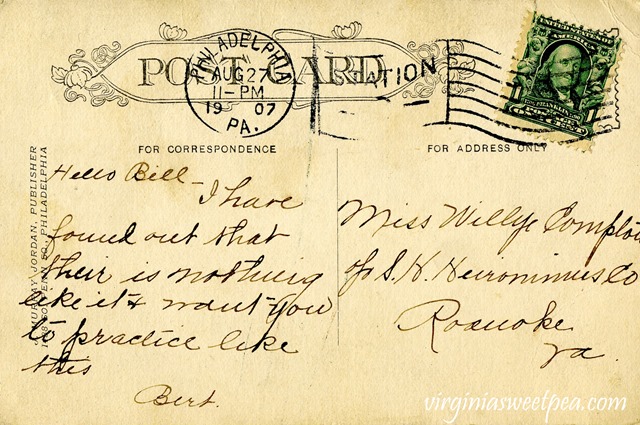 POST CARD
PHILADELPHIA
AUG 27
11-PM
19 07
PA.
STATION
FRANKLIN
ONE CENT
FOR CORRESPONDENCE
FOR ADDRESS ONLY
JORDAN, PUBLISHER
PENN SQ. PHILADELPHIA
Hello Bill-
I have
found out that
their is nothing
like it & want you
to practice like
this
Bert.
Miss Willye Compton
S. H. Heironimus Co
Roanoke
Va.
virginiasweetpea.com